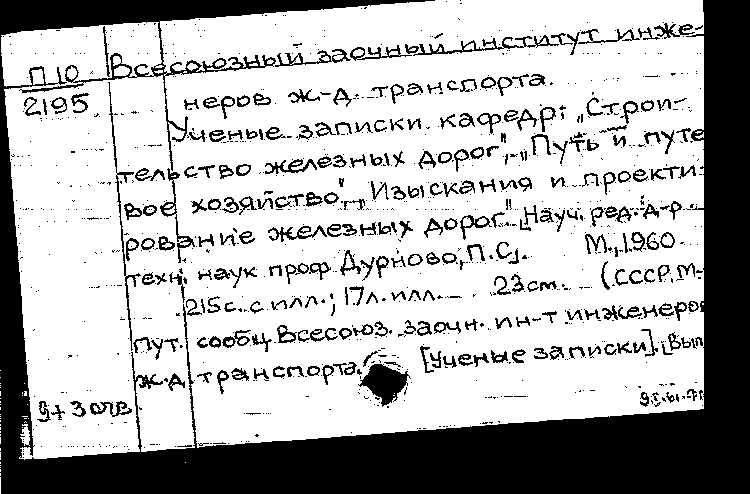 П 10 Всесоюзный заочный институт инже-
2195 неров ж.-д. транспорта.
Ученые записки кафедр: „Строи-
тельство железных дорог", „Путь и путе
вое хозяйство", „Изыскания и проекти-
рование железных дорог". [Науч. ред. д-р
техн. наук проф. Дурново, П.С.]. М., 1960.
215с. с илл.; 17л. илл. 23см. (СССР. М-
пут. сообщ. Всесоюз. заочн. ин-т инженеров
ж.-д. транспорта. [Ученые записки]. [Вып